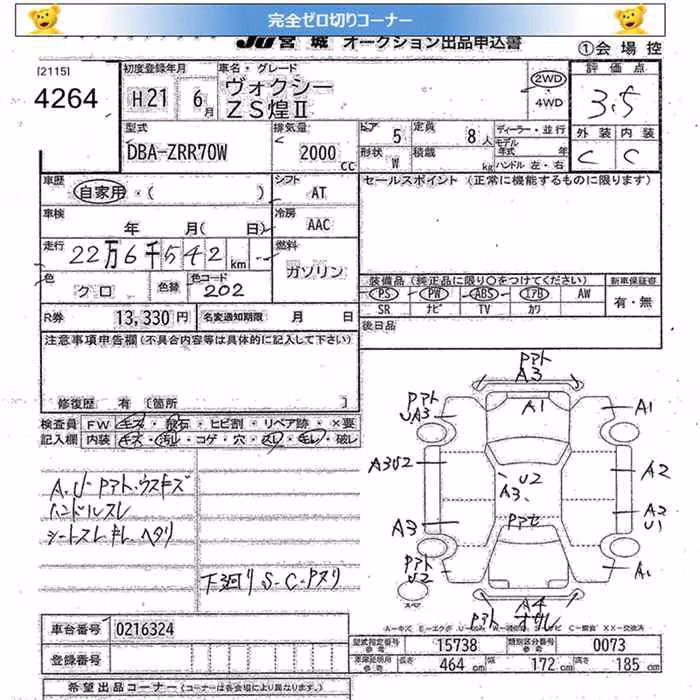 完全ゼロ切りコーナー
JU宮城 オークション出品申込書
①会場控
[2115]
4264
初度登録年月
H21 6月
車名・グレード
ヴォクシー
ZS煌Ⅱ
2WD
4WD
評価点
3.5
外装 内装
C C
型式
DBA-ZRR70W
排気量
2000 cc
ドア 5
定員 8人
形状 W
積載 kg
ディーラー・並行
モデル年式 年
ハンドル 左・右
車歴
自家用・( )
シフト
AT
セールスポイント (正常に機能するものに限ります)
車検
年 月( 日)
冷房
AAC
走行
22万6千542km
燃料
ガソリン
色
クロ
色替
色コード
202
装備品 (純正品に限り○をつけてください)
新車保証書
PS PW ABS エアB AW
SR ナビ TV カワ
有・無
R券 13,330円
名変通知期限 月 日
後日品
注意事項申告欄 (不具合内容等は具体的に記入して下さい)
修復歴 有 [箇所 ]
検査員
記入欄
FW キズ・飛石・ヒビ割・リペア跡・×要
内装 キズ・汚れ・コゲ・穴・スレ・キレ・破レ
A.U.Pアト.ウスキズ
ハンドルスレ
シートスレ キレ ヘタリ
下廻り S-C-Pヌリ
Pアト
A3
Pアト
UA3
A1
A1
A3U2
U2
A3
A2
A3
Pアセ
A2
U1
Pアト
U2
A1
スペア
A4
Pアト オサレ
車台番号 0216324
登録番号
型式指定番号 参考 15738
類別区分番号 参考 0073
車庫証明用 参考
長さ 464 cm
幅 172 cm
高さ 185 cm
希望出品コーナー (コーナーは各会場により異なります。)